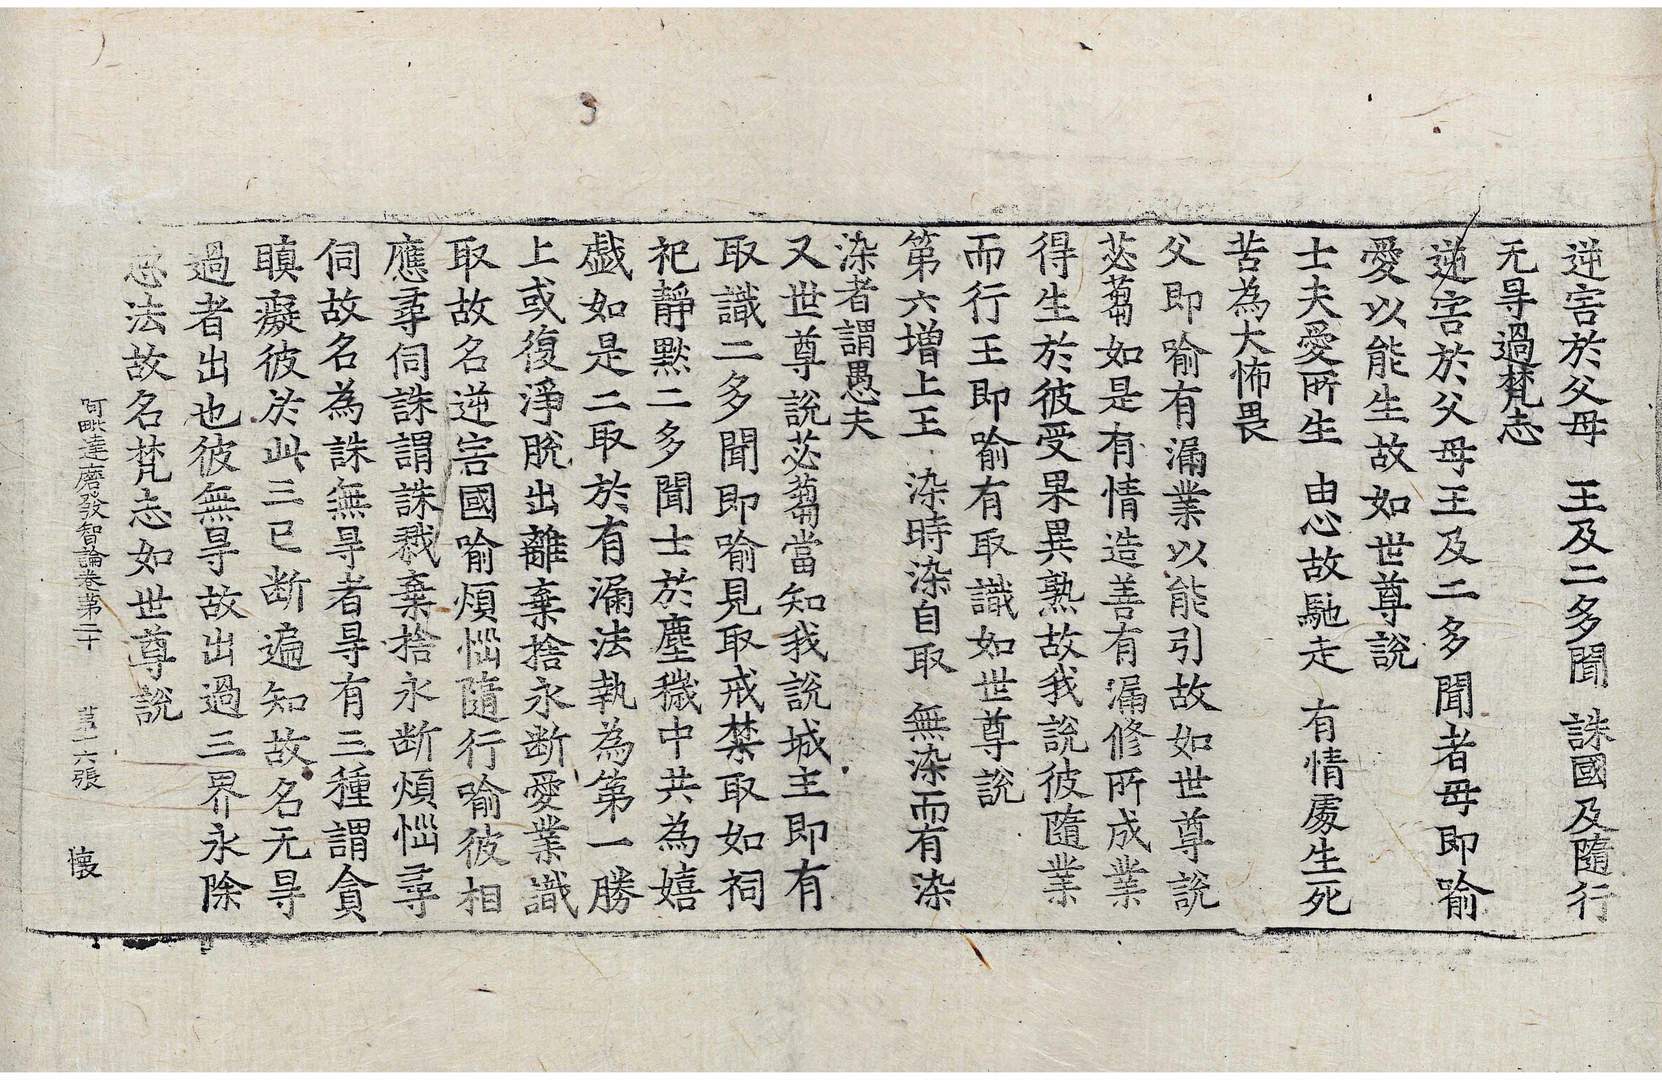 逆害於父母　王及二多聞　誅國及隨行
无㝵過梵志
逆害於父母王及二多聞者母即喻
愛以能生故如世尊說
士夫愛所生　由心故馳走　有情處生死
苦為大怖畏
父即喻有漏業以能引故如世尊說
苾蒭如是有情造善有漏修所成業
得生於彼受果異熟故我說彼隨業
而行王即喻有取識如世尊說
第六增上王　染時染自取　無染而有染
染者謂愚夫
又世尊說苾蒭當知我說城主即有
取識二多聞即喻見取戒禁取如祠
祀靜默二多聞士於塵穢中共為嬉
戲如是二取於有漏法執為第一勝
上或復淨脫出離棄捨永断愛業識
取故名逆害國喻煩惱隨行喻彼相
應尋伺誅謂誅戮棄捨永断煩惱尋
伺故名為誅無㝵者㝵有三種謂貪
瞋癡彼於此三已断遍知故名无㝵
過者出也彼無㝵故出過三界永除
惡法故名梵志如世尊說
阿毗達磨發智論卷第二十　第十六張　懷